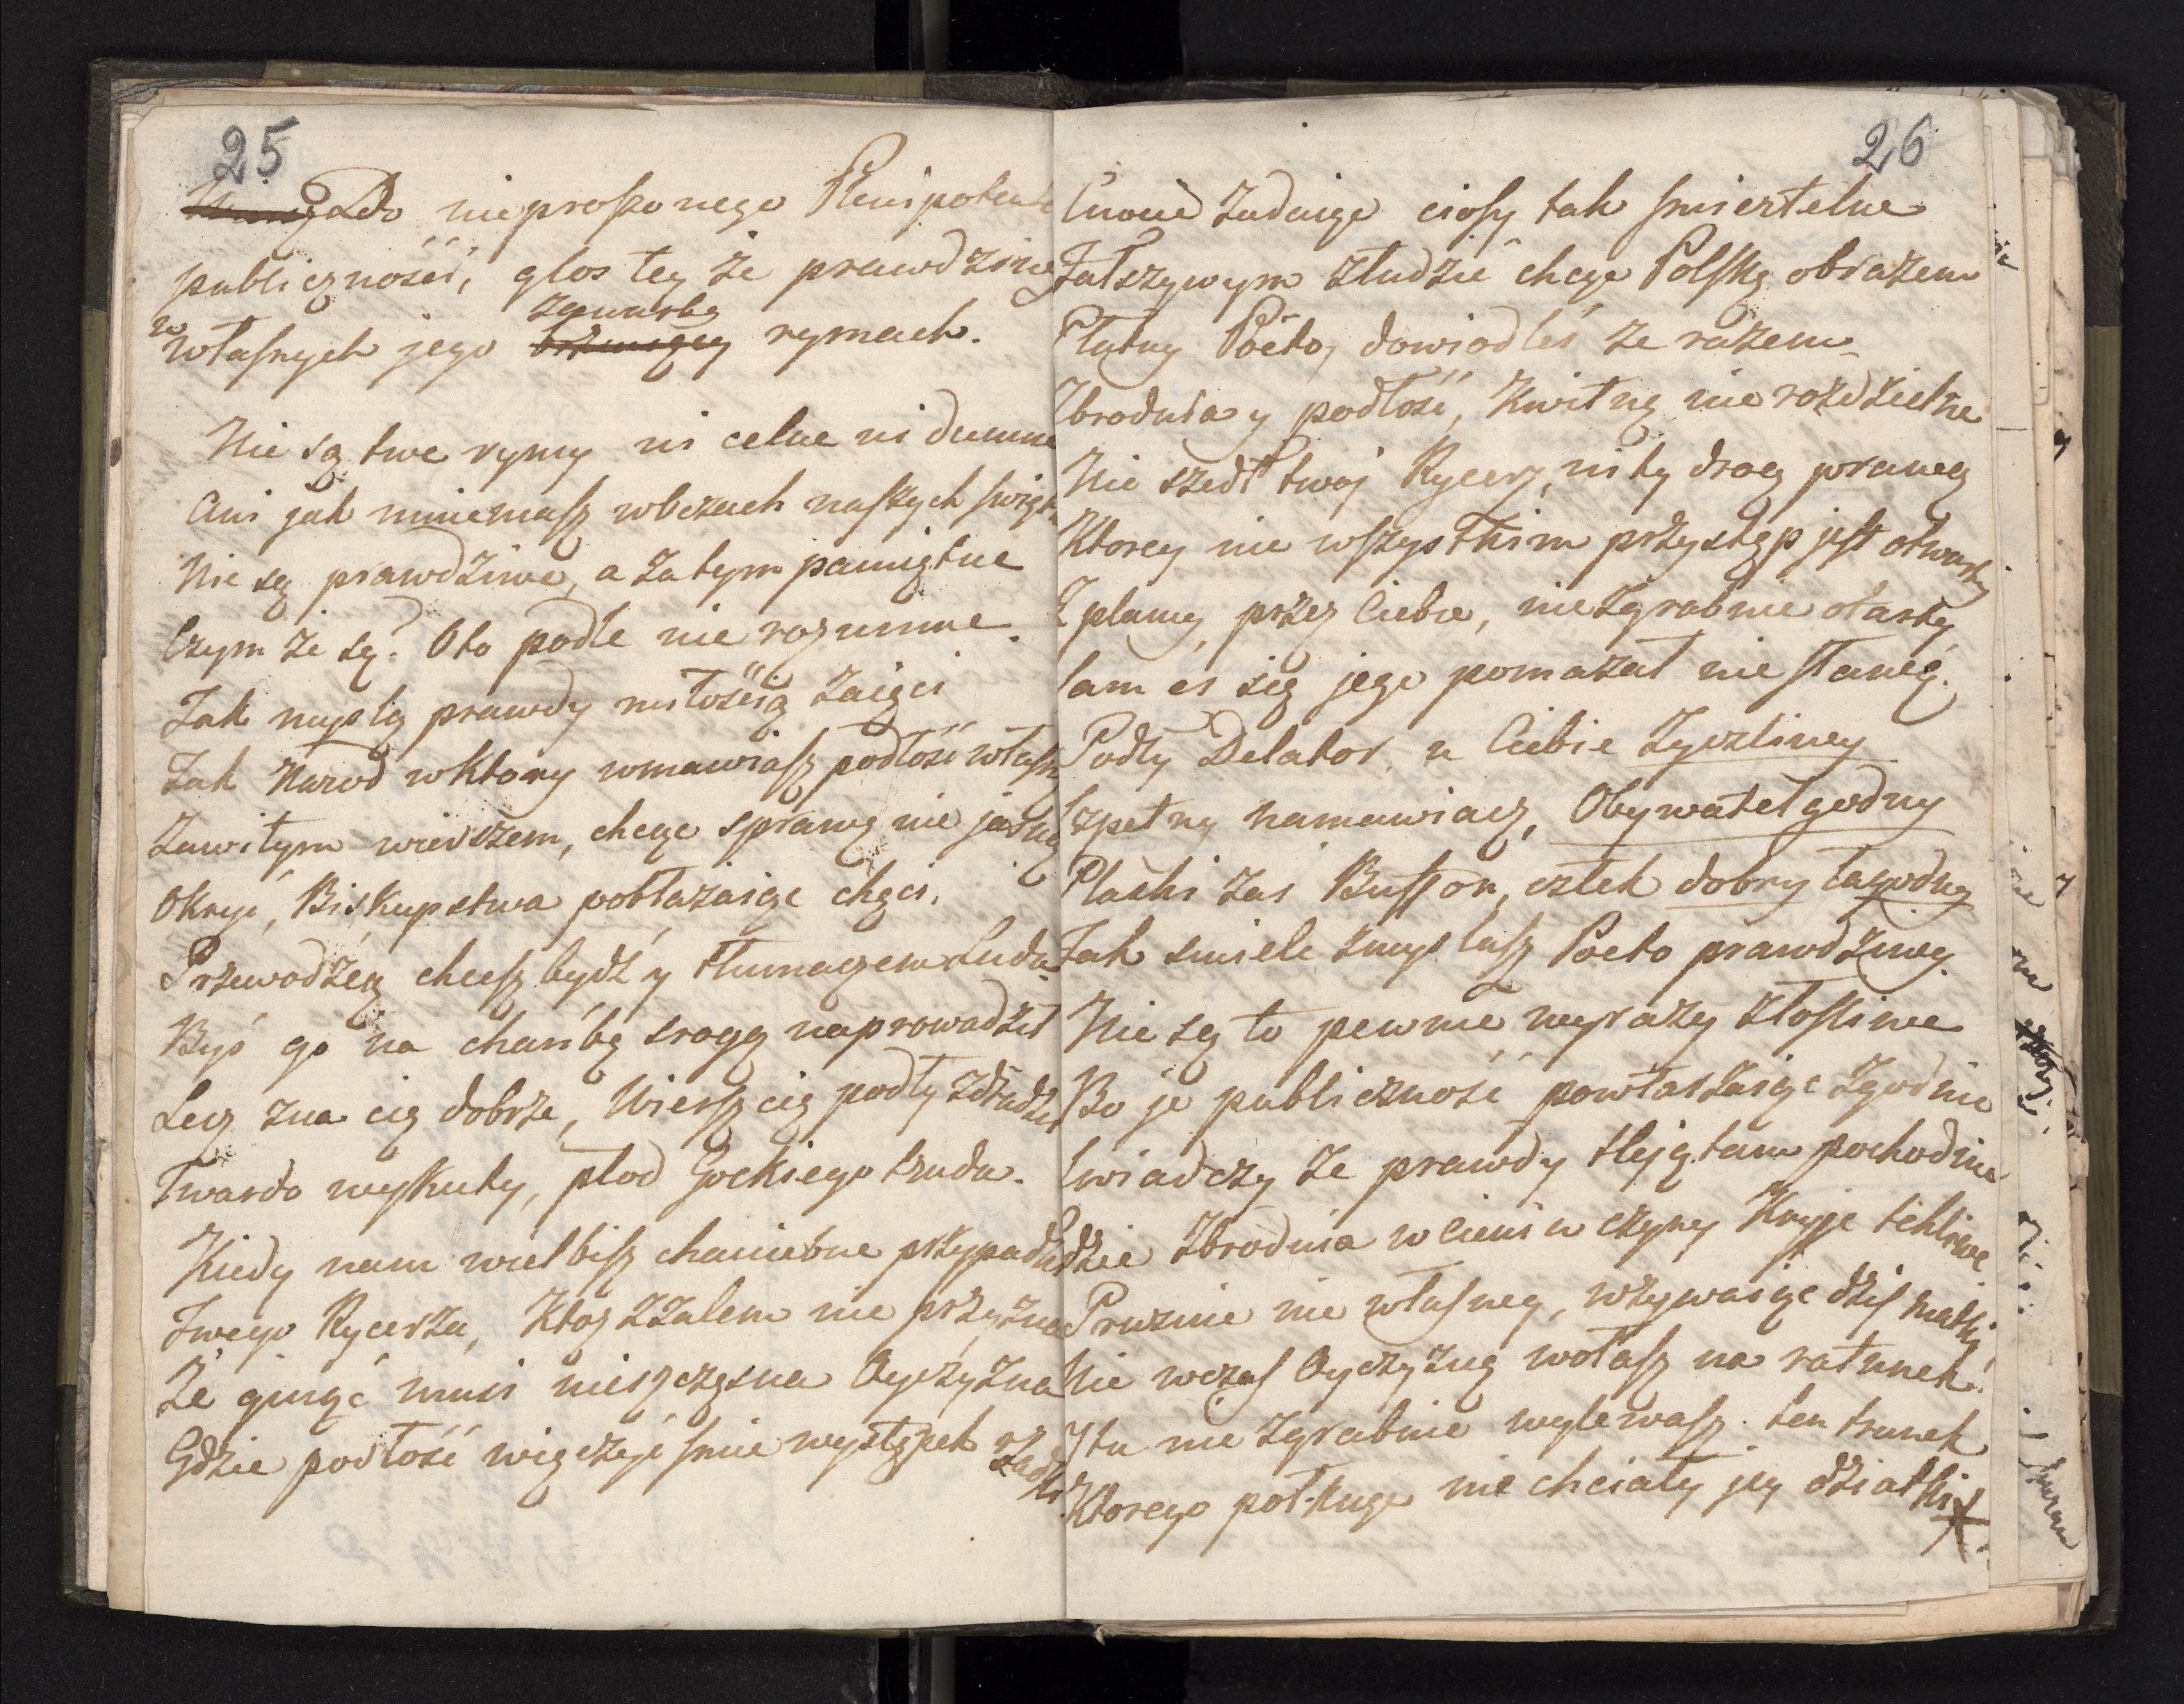 25
Do nieproszonego Plenipotenta
publicznośći, głos tey że prawdziwey
w własnych jego zawarty brzmiący rymach.
Nie są twe rymy ni celne ni dumne
Ani jak mniemasz wbczach naszych święte
Nie są prawdziwe, a zatym pamiętne
Czym że są? Oto podłe nie rozumne.
Jak myslą prawdy miłośćią zaięci
Jak Narod wktory wmawiasz podłość własną
Zawitym wierszem, chcąc sprawę nie jasną
Okryć, Biskupstwa pobłażaiąc chęci.
Przewodźcą chcesz bydź y tłumaczem Ludu
Byś go na chańbę srogą naprowadził
Lecz zna cię dobrze, Wiersz cię podły zdradził
Twardo wyskuty, płod Gockiego trudu.
Kiedy nam wielbisz chaniebne przypadki
Twego Rycerza, Ktoz zzalem nie przyzna
Że ginąć musi nieszczęsna Oyczyzna
Gdzie podłość więczyć smie występek rzadki
26
Cnocie zadaiąc ciosy tak smiertelne
Fałszywym złudzić chcąc Polskę obrazem
Płatny Poeto, dowiodłeś że razem
Zbrodnia y podłość, Kwitną nie rozdzielne
Nie szedł twoj Rycerz, ni ty drogą prawą
Ktorey nie wszystkim przystęp jest otwarty
Z plamy przez Ciebie, niezgrabnie otarty
Sam eś się jego pomazał nie sławą.
Podły Delator, u Ciebie Zyczliwy
Szpetny namawiacz, Obywatel godny
Płaski zaś Buffon, człek dobry łagodny
Jak smiele zmyslasz Poeto prawdziwy.
Nie są to pewnie wyrazy złosliwe
Bo je publiczność powtarzaiąc zgodnie
Swiadczy że prawdy tleją tam pochodnie
Gdzie Zbrodnia w Cieniu czyny Kryje tchliwe
Prozno nie własney, wzywaiąc dziś matki
Nie wczas Oyczyznę wołasz na ratunek
I tu nie zgrabnie wylewasz ten trunek
Ktorego połknąć nie chciały jey dziatki